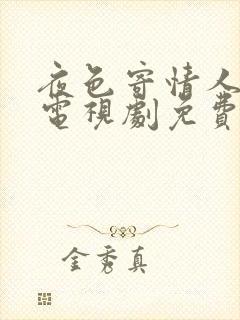 夜色寄情人
電視劇免費
金秀真